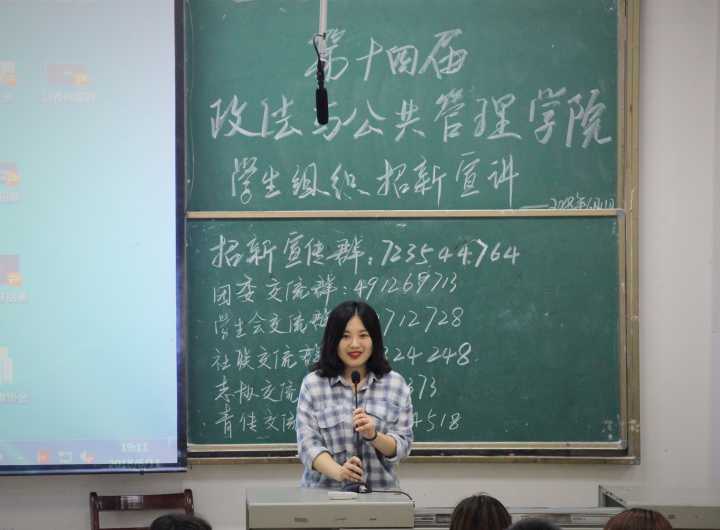 第十四届
政法与公共管理学院
学生组织招新宣讲
招新宣传群:723544764
团委交流群:491269713
学生会交流群 712728
社联交流群 24248
志协交流 373
青传交流 4518
19:11